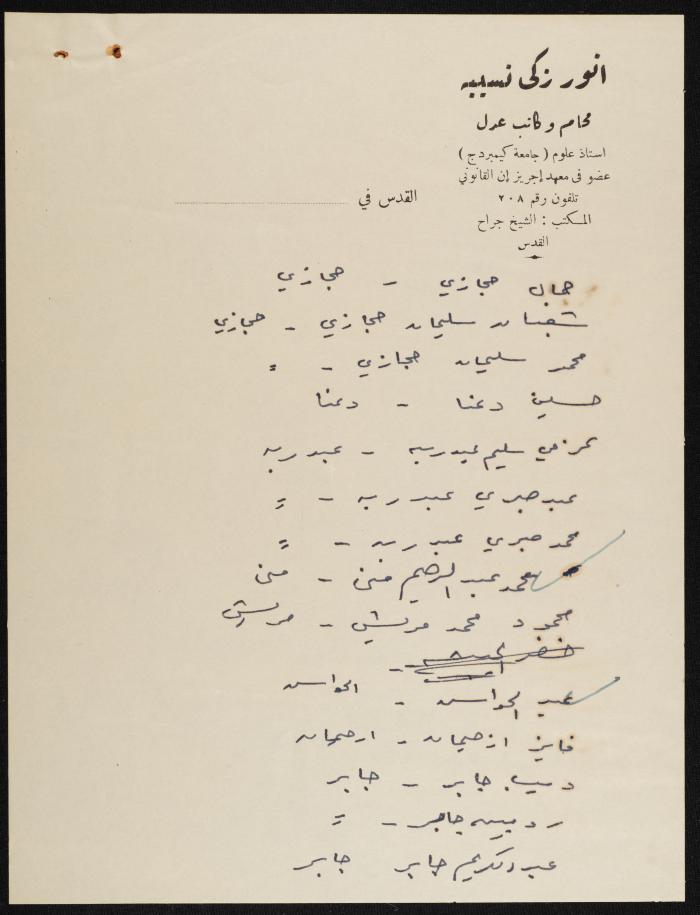 انور زكي نسيبه
محام وكاتب عدل
استاذ علوم (جامعة كيمبردج)
عضو في معهد إجريز إن القانوني
تلفون رقم ٢٠٨
القدس في
المكتب : الشيخ جراح
القدس
جمال حجازي - حجازي
شعبان سليمان حجازي - حجازي
محمد سليمان حجازي - =
حسين دعنا - دعنا
سليم عبدربه - عبدربه
عبد صبري عبدربه - =
محمد صبري عبدربه - =
محمد عبد الرحيم منى - منى
محمود محمد مريش - مريش
خضر
عيد الحواس - الحواس
فايز ارحيمان - ارحيمان
ديب جابر - جابر
جابر - =
عبدالكريم جابر جابر